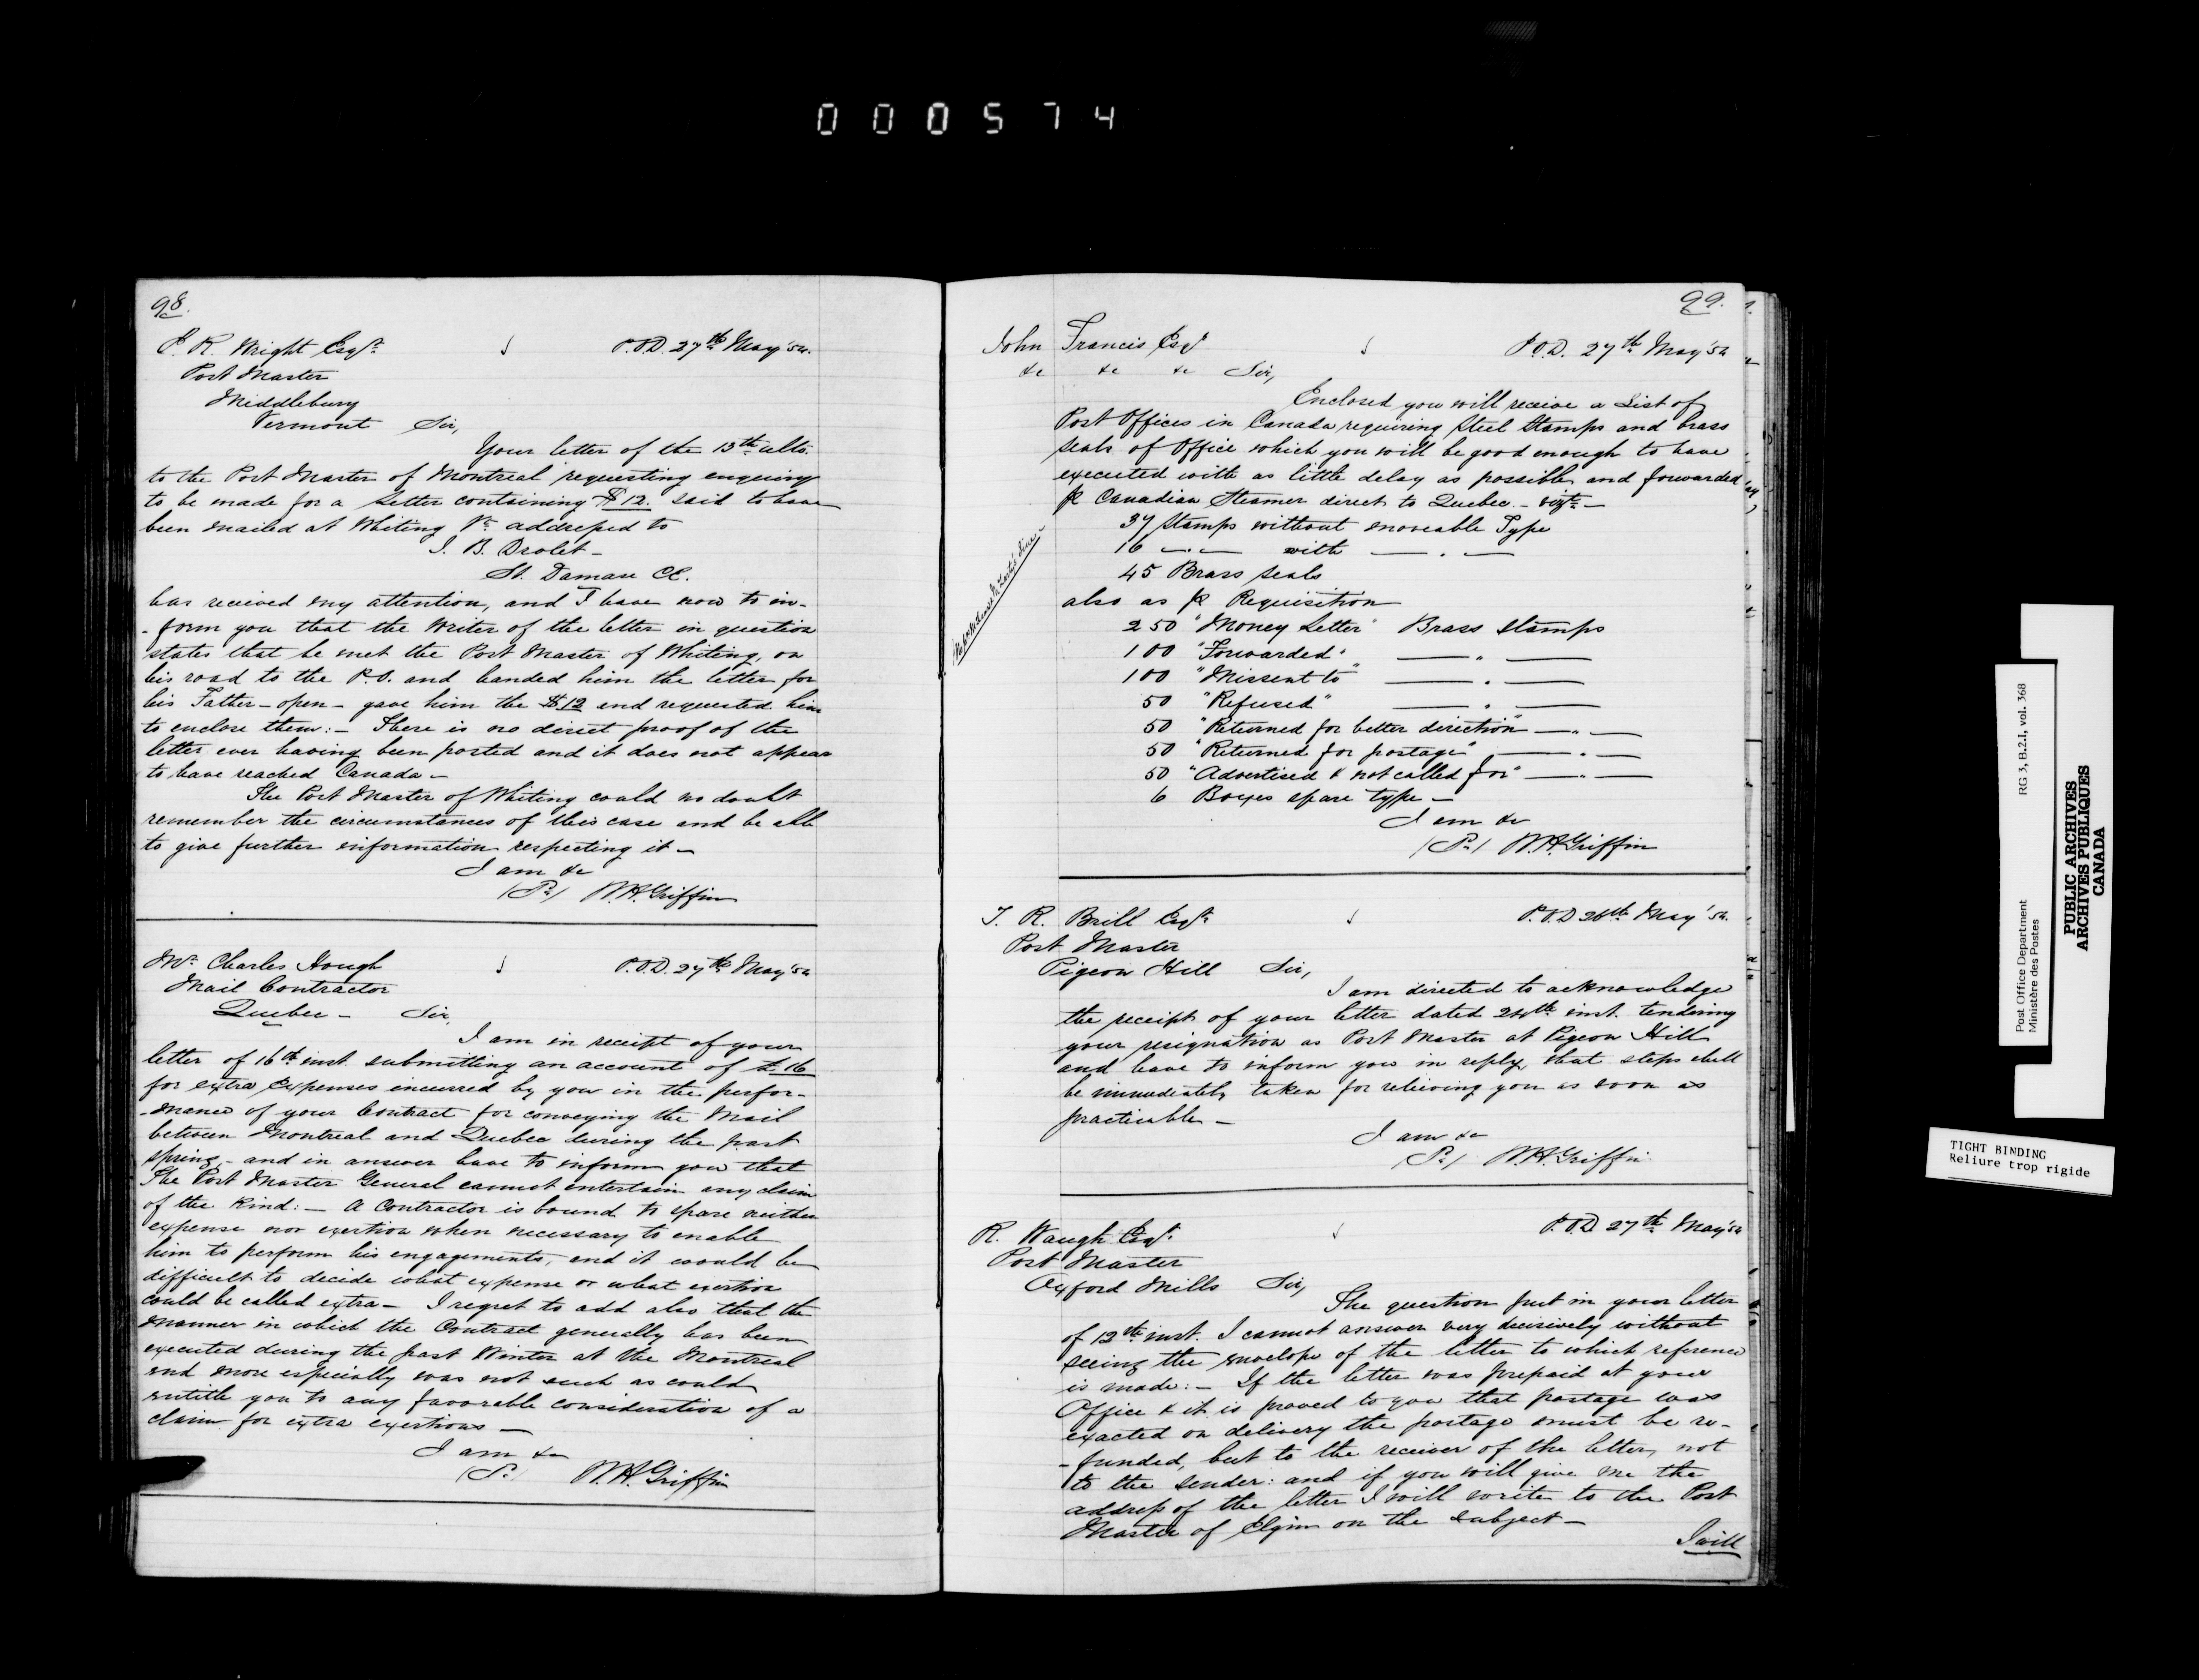 000574
98.
J. R. Wright Esqr.
P.O.D. 27th May '54.
Post Master
Middlebury
Vermont Sir,
Your letter of the 13th ulto.
to the Post Master of Montreal requesting enquiry
to be made for a Letter containing $12. said to have
been mailed at Whiting Vt. addressed to
J. B. Drolet -
St. Damase CE.
has received my attention, and I have now to in-
-form you that the Writer of the letter in question
states that he met the Post Master of Whiting, on
his road to the P.O. and handed him the letter for
his Father - open - gave him the $12 and requested him
to enclose them: - There is no direct proof of the
letter ever having been posted and it does not appear
to have reached Canada -
The Post Master of Whiting could no doubt
remember the circumstances of this case and be able
to give further information respecting it -
I am &c
W.H. Griffin
Mr. Charles Hough
P.O.D. 27th May '54
Mail Contractor
Quebec - Sir,
I am in receipt of your
letter of 16th inst. submitting an account of £16
for extra expenses incurred by you in the perfor-
-mance of your Contract for conveying the Mail
between Montreal and Quebec during the past
spring - and in answer have to inform you that
The Post Master General cannot entertain any claim
of the kind: - A Contractor is bound to spare neither
expense nor exertion when necessary to enable
him to perform his engagements, and it would be
difficult to decide what expense or what exertion
could be called extra - I regret to add also that the
manner in which the Contract generally has been
executed during the past Winter at the Montreal
end more especially was not such as could
entitle you to any favorable consideration of a
claim for extra exertions -
I am &c
W.H. Griffin
99.
John Francis Esqr
P.O.D. 27th May '54
&c &c &c Sir,
Enclosed you will receive a List of
Post Offices in Canada requiring Steel Stamps and brass
seals of Office which you will be good enough to have
executed with as little delay as possible and forwarded
pr Canadian Steamer direct to Quebec. -
37 Stamps without moveable Type
16 —.— with — . —
45 Brass seals
also as pr Requisition
250 "Money Letter" Brass Stamps
100 "Forwarded" — " —
100 "Missent to" — . —
50 "Refused" — " —
50 "Returned for better direction" — " —
50 "Returned for postage" — . —
50 "Advertised & not called for" — " —
6 Boxes spare type -
I am &c
W.H. Griffin
T. R. Brill Esqr
P.O.D 26th May '54.
Post Master
Pigeon Hill Sir,
I am directed to acknowledge
the receipt of your letter dated 24th inst. tendering
your resignation as Post Master at Pigeon Hill
and have to inform you in reply, that steps shall
be immediately taken for relieving you as soon as
practicable -
I am &c
W.H. Griffin
R. Waugh Esqr.
P.O.D 27th May '54
Post Master
Oxford Mills Sir,
The question put in your letter
of 12th inst. I cannot answer very decisively without
seeing the envelope of the letter to which reference
is made: - If the letter was prepaid at your
Office & it is proved to you that postage was
exacted on delivery the postage must be re-
-funded, but to the receiver of the letter, not
to the sender: and if you will give me the
address of the letter I will write to the Post
Master of Elgin on the subject -
I will
Post Office Department RG 3, B.2.I, vol. 368
Ministère des Postes
PUBLIC ARCHIVES
ARCHIVES PUBLIQUES
CANADA
TIGHT BINDING
Reliure trop rigide